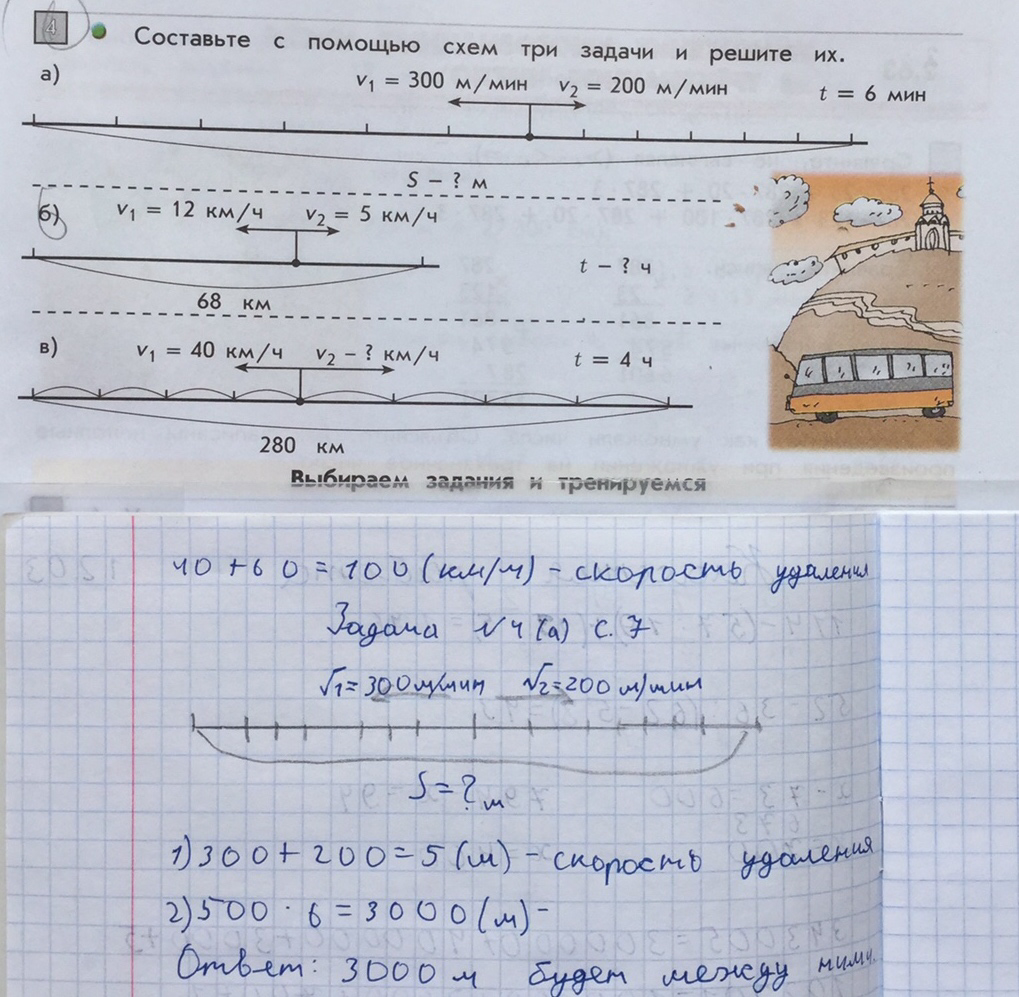 4 Составьте с помощью схем три задачи и решите их.
а) v₁ = 300 м/мин v₂ = 200 м/мин t = 6 мин
S – ? м
б) v₁ = 12 км/ч v₂ = 5 км/ч
t – ? ч
68 км
в) v₁ = 40 км/ч v₂ – ? км/ч t = 4 ч
280 км
Выбираем задания и тренируемся
40 + 60 = 100 (км/ч) – скорость удаления
Задача №4 (а) с. 7
v₁ = 300 м/мин v₂ = 200 м/мин
S = ? м
1) 300 + 200 = 5 (м) – скорость удаления
2) 500 · 6 = 3000 (м) –
Ответ: 3000 м будет между ними.